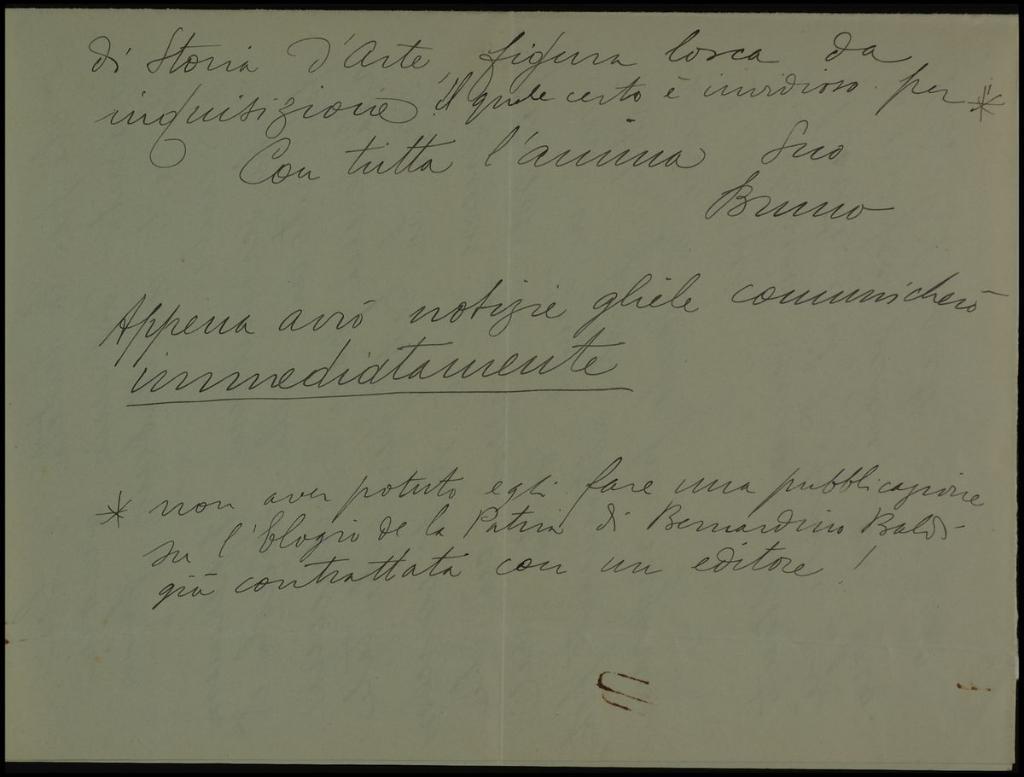 di Storia D'Arte, figura losca da
inquisizione il quale certo è invidioso per *
Con tutta l'anima Suo
Bruno
Appena avrò notizie gliele comunicherò
immediatamente
* non aver potuto egli fare una pubblicazione
su l'Elogio de la Patria di Bernardino Baldi -
già contrattata con un editore!